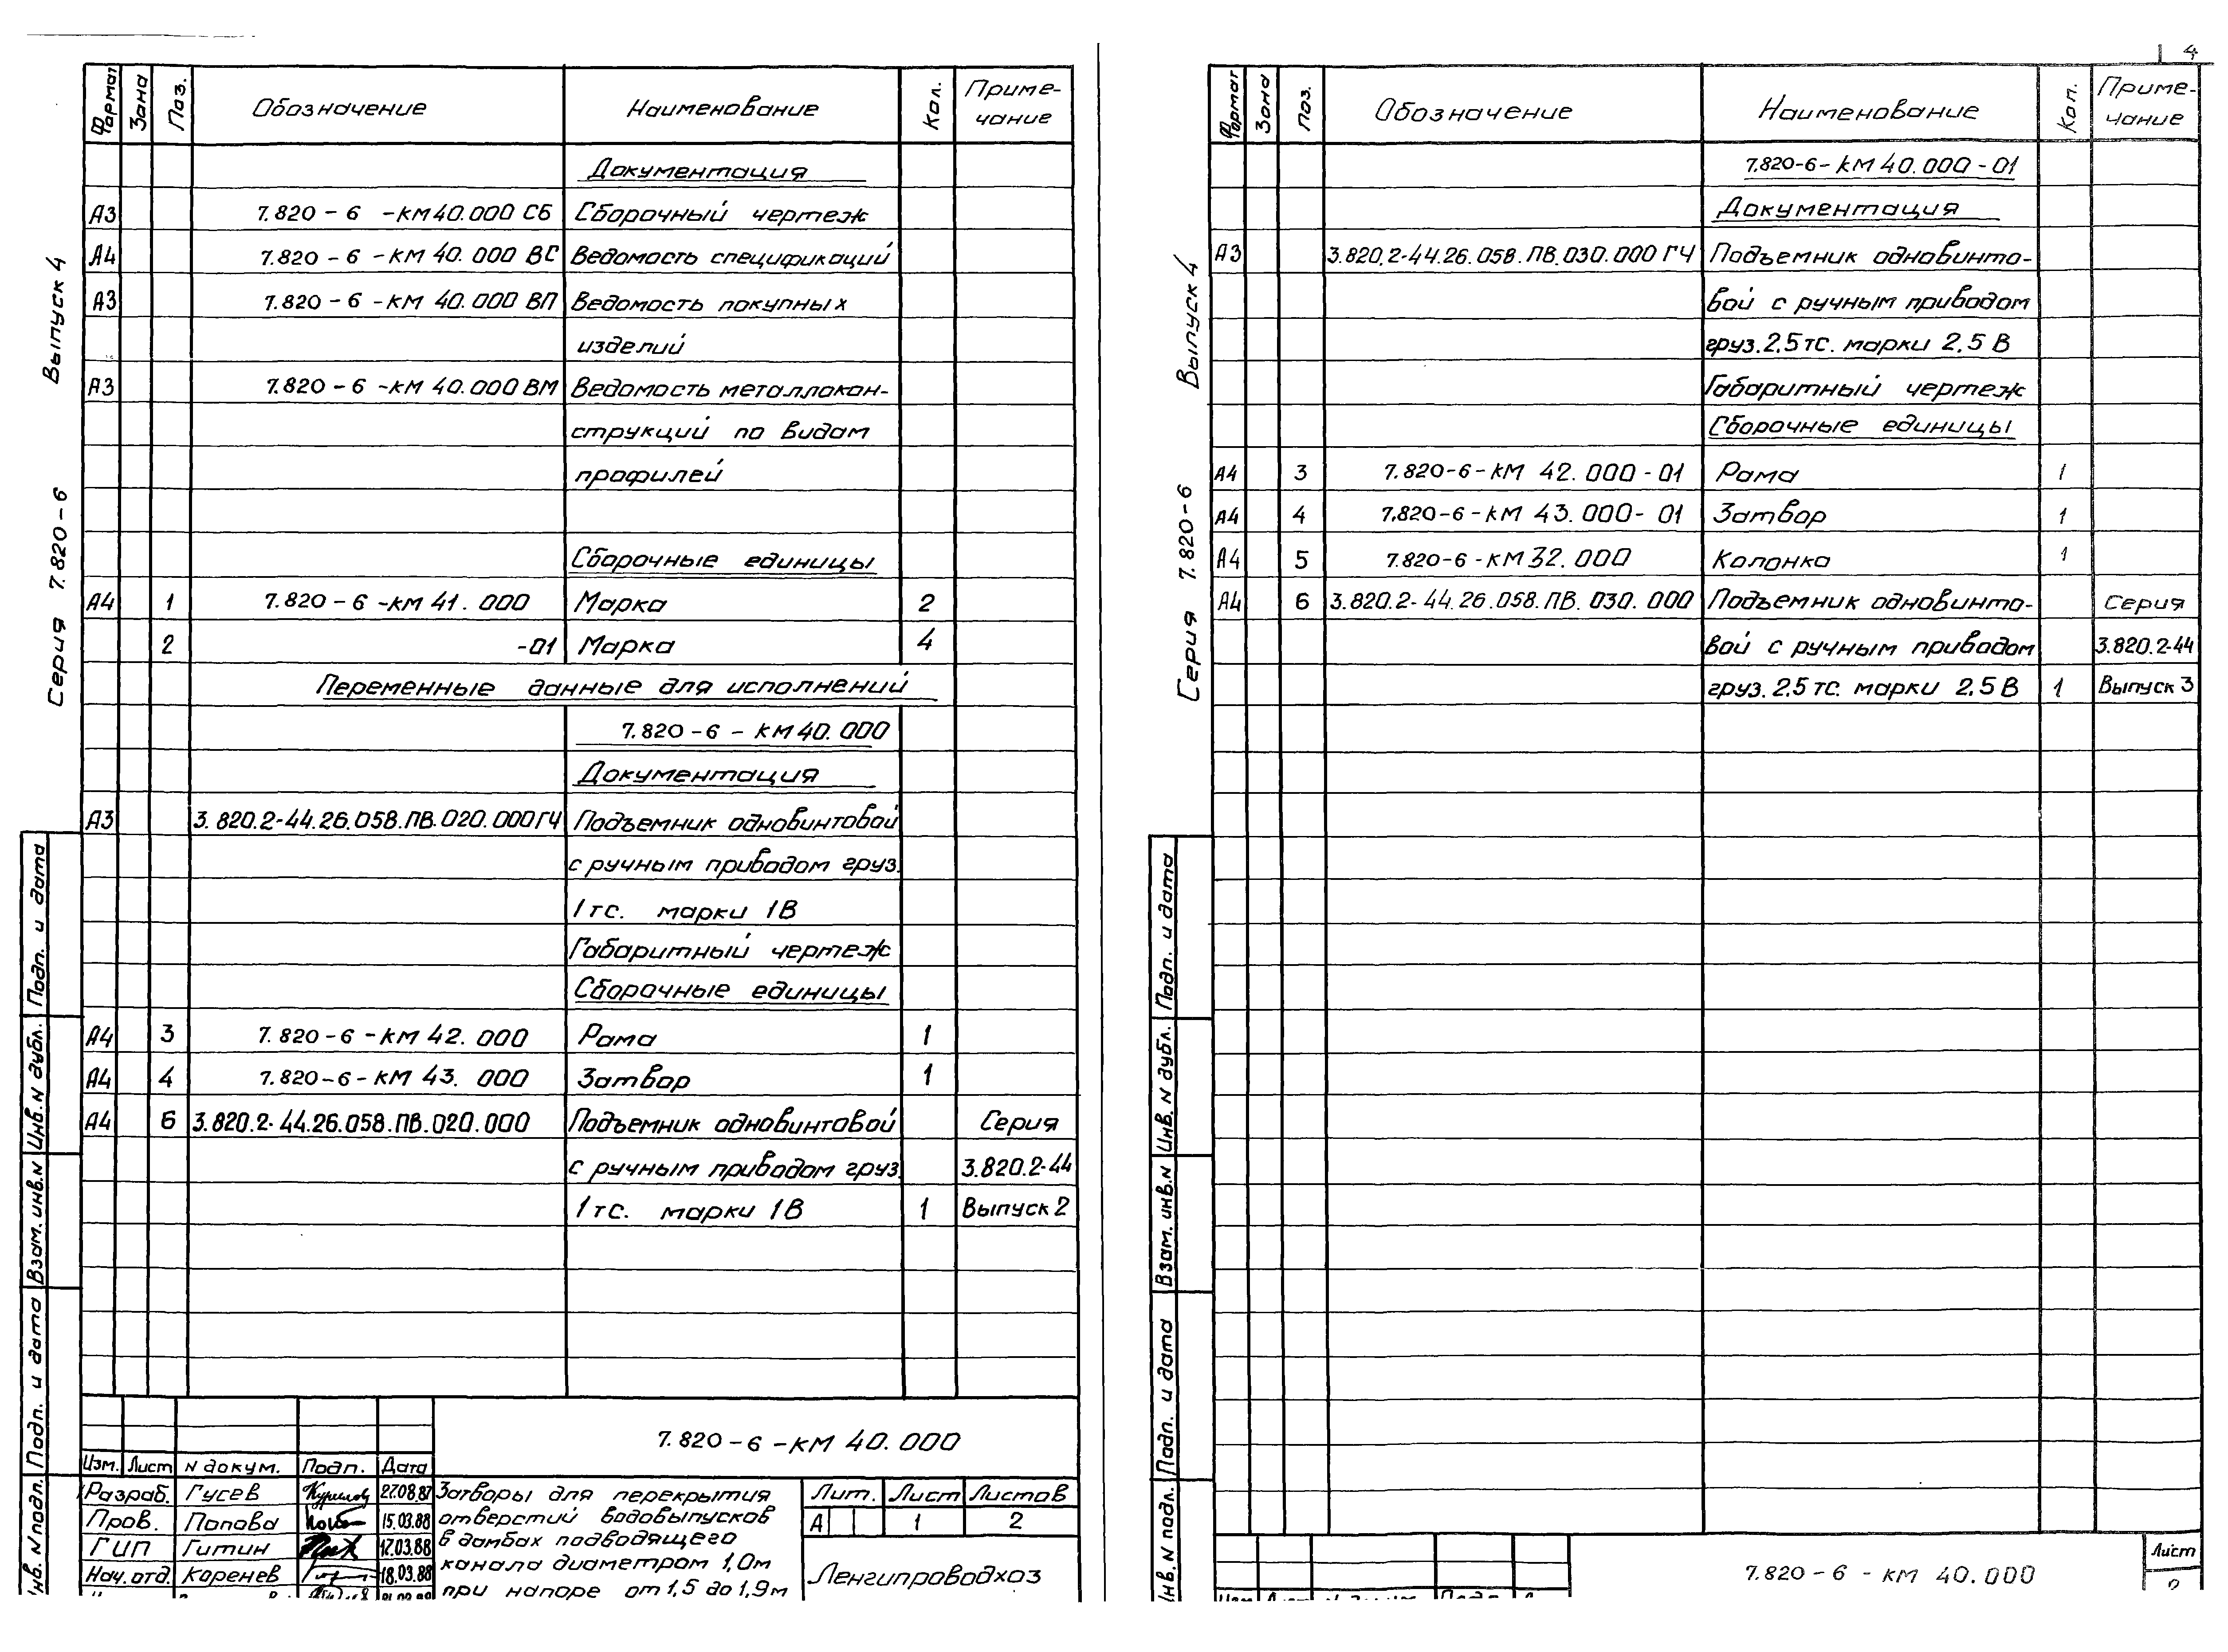 Серия 7.820-6 Выпуск 4
Формат Зона Поз. Обозначение Наименование Кол. Приме-
чание
Документация
А3 7.820-6-КМ 40.000 СБ Сборочный чертеж
А4 7.820-6-КМ 40.000 ВС Ведомость спецификаций
А3 7.820-6-КМ 40.000 ВП Ведомость покупных
изделий
А3 7.820-6-КМ 40.000 ВМ Ведомость металлокон-
струкций по видам
профилей
Сборочные единицы
А4 1 7.820-6-КМ 41.000 Марка 2
2 -01 Марка 4
Переменные данные для исполнений
7.820-6-КМ 40.000
Документация
А3 3.820.2-44.26.058.ПВ.020.000ГЧ Подъемник одновинтовой
с ручным приводом груз.
1 тс. марки 1В
Габаритный чертеж
Сборочные единицы
А4 3 7.820-6-КМ 42.000 Рама 1
А4 4 7.820-6-КМ 43.000 Затвор 1
А4 6 3.820.2-44.26.058.ПВ.020.000 Подъемник одновинтовой Серия
с ручным приводом груз. 3.820.2-44
1 тс. марки 1В 1 Выпуск 2
Инв. N подл. Подп. и дата Взам. инв. N Инв. N дубл. Подп. и дата
7.820-6-КМ 40.000
Изм. Лист N докум. Подп. Дата
Разраб. Гусев 27.08.87
Пров. Попова 15.03.88
ГИП Гитин 17.03.88
Нач. отд. Коренев 18.03.88
Затворы для перекрытия
отверстий водовыпусков
в дамбах подводящего
канала диаметром 1,0м
при напоре от 1,5 до 1,9м
Лит. Лист Листов
А 1 2
Ленгипроводхоз
4
Серия 7.820-6 Выпуск 4
Формат Зона Поз. Обозначение Наименование Кол. Приме-
чание
7.820-6-КМ 40.000-01
Документация
А3 3.820.2-44.26.058.ПВ.030.000 ГЧ Подъемник одновинто-
вой с ручным приводом
груз. 2,5 тс. марки 2,5 В
Габаритный чертеж
Сборочные единицы
А4 3 7.820-6-КМ 42.000-01 Рама 1
А4 4 7.820-6-КМ 43.000-01 Затвор 1
А4 5 7.820-6-КМ 32.000 Колонка 1
А4 6 3.820.2-44.26.058.ПВ.030.000 Подъемник одновинто- Серия
вой с ручным приводом 3.820.2-44
груз. 2,5 тс. марки 2,5 В 1 Выпуск 3
Инв. N подл. Подп. и дата Взам. инв. N Инв. N дубл. Подп. и дата
7.820-6-КМ 40.000
Лист